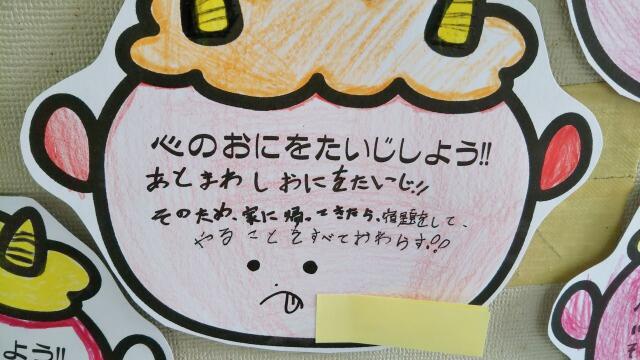 心のおにをたいじしよう!!
あとまわしおにをたいじ!!
そのため、家に帰ってきたら、宿題をして、
やることをすべておわらす!!
よう!!